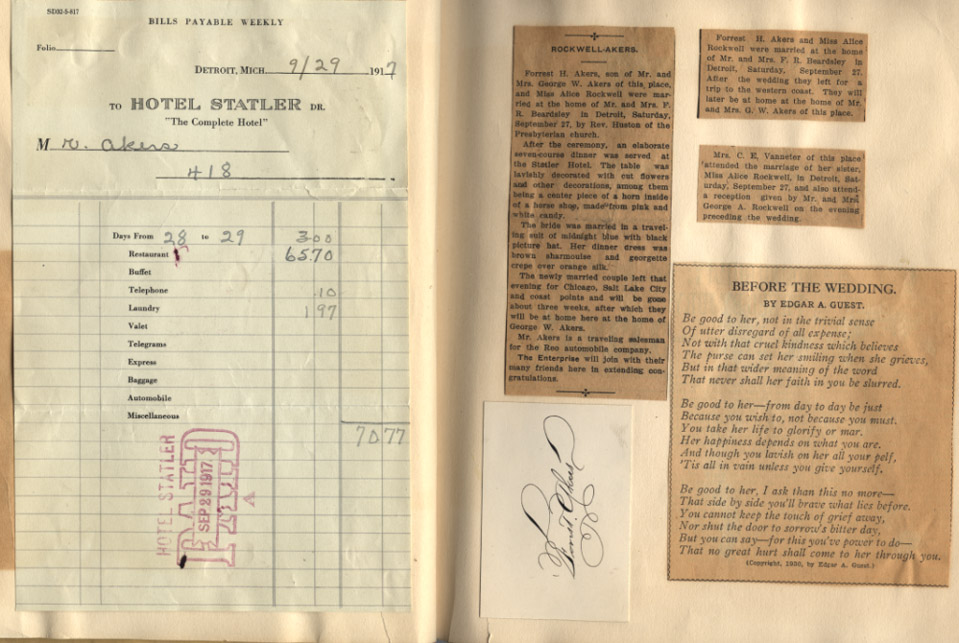 SD02-5-617
BILLS PAYABLE WEEKLY
Folio
DETROIT, MICH. 9/29 1917
TO HOTEL STATLER DR.
"The Complete Hotel"
Mr. Akers
418
Days From 28 to 29 300
Restaurant 6570
Buffet
Telephone .10
Laundry 197
Valet
Telegrams
Express
Baggage
Automobile
Miscellaneous
7077
HOTEL STATLER
PAID
SEP 29 1917
A
ROCKWELL-AKERS.
Forrest H. Akers, son of Mr. and
Mrs. George W. Akers of this place,
and Miss Alice Rockwell were mar-
ried at the home of Mr. and Mrs. F.
R. Beardsley in Detroit, Saturday,
September 27, by Rev. Huston of the
Presbyterian church.
After the ceremony, an elaborate
seven-course dinner was served at
the Statler Hotel. The table was
lavishly decorated with cut flowers
and other decorations, among them
being a center piece of a horn inside
of a horse shop, made from pink and
white candy.
The bride was married in a travel-
ing suit of midnight blue with black
picture hat. Her dinner dress was
brown sharmouise and georgette
crepe over orange silk.
The newly married couple left that
evening for Chicago, Salt Lake City
and coast points and will be gone
about three weeks, after which they
will be at home here at the home of
George W. Akers.
Mr. Akers is a traveling salesman
for the Reo automobile company.
The Enterprise will join with their
many friends here in extending con-
gratulations.
Forrest H. Akers and Miss Alice
Rockwell were married at the home
of Mr. and Mrs. F. R. Beardsley in
Detroit, Saturday, September 27.
After the wedding they left for a
trip to the western coast. They will
later be at home at the home of Mr.
and Mrs. G. W. Akers of this place.
Mrs. C. E. Vanneter of this place
attended the marriage of her sister,
Miss Alice Rockwell, in Detroit, Sat-
urday, September 27, and also attend-
a reception given by Mr. and Mrs
George A. Rockwell on the evening
preceding the wedding.
BEFORE THE WEDDING.
BY EDGAR A. GUEST.
Be good to her, not in the trivial sense
Of utter disregard of all expense;
Not with that cruel kindness which believes
The purse can set her smiling when she grieves,
But in that wider meaning of the word
That never shall her faith in you be slurred.
Be good to her—from day to day be just
Because you wish to, not because you must.
You take her life to glorify or mar.
Her happiness depends on what you are.
And though you lavish on her all your pelf,
'Tis all in vain unless you give yourself.
Be good to her, I ask than this no more—
That side by side you'll brave what lies before.
You cannot keep the touch of grief away,
Nor shut the door to sorrow's bitter day,
But you can say—for this you've power to do—
That no great hurt shall come to her through you.
(Copyright, 1920, by Edgar A. Guest.)